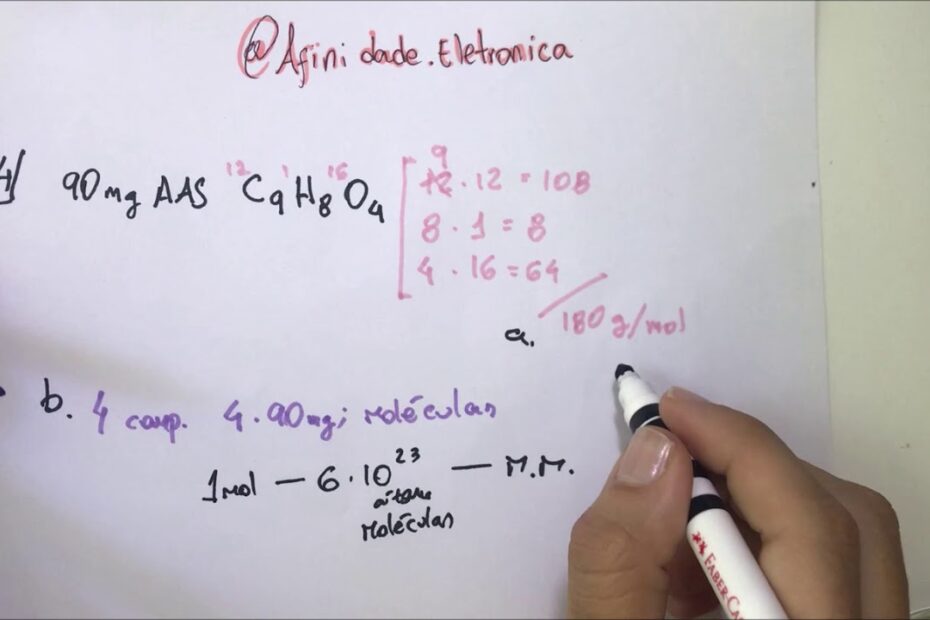 @Afinidade.Eletronica
90mg AAS C9H8O4
12 1 16
9
12 . 12 = 108
8 . 1 = 8
4 . 16 = 64
a. 180g/mol
b. 4 comp. 4.90mg; moléculas
1mol — 6.10²³ — M.M.
moléculas
FABER-CA